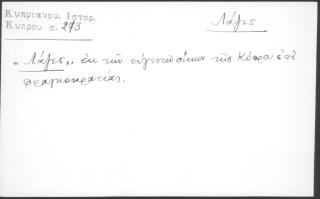 Κυπριανου, Ιστορ.
Κυπρου σ. 273
Λάζες
"Λάζες„ ἐκ τῶν εὐγενῶν οἴκων τῆς Κύπρου ἐπὶ
φραγκοκρατίας.